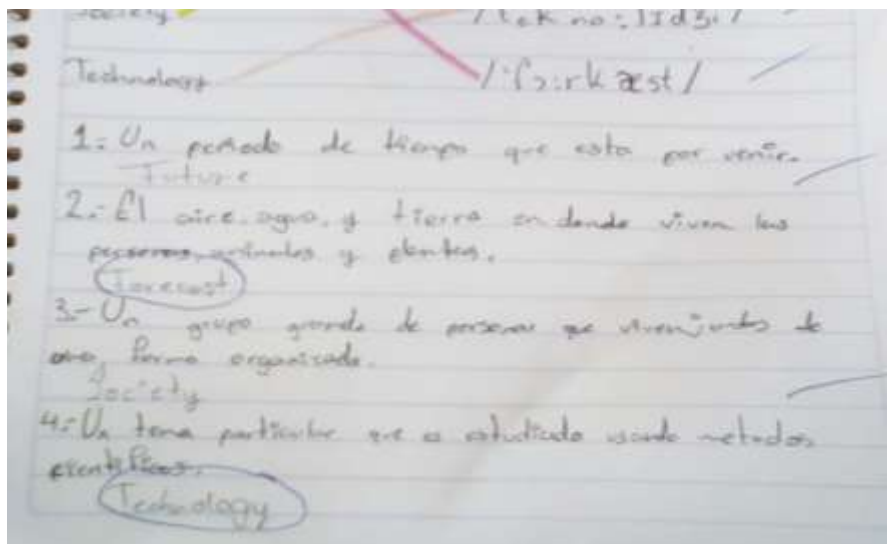 Society /tek no: lIdʒi/
Technology /'fɔ:rkæst/
1.- Un periodo de tiempo que esta por venir.
Future
2.- El aire, agua, y tierra en donde viven las
personas, animales y plantas.
Forecast
3.- Un grupo grande de personas que viven juntos de
una forma organizada.
Society
4.- Un tema particular que es estudiado usando metodos
cientificos.
Technology